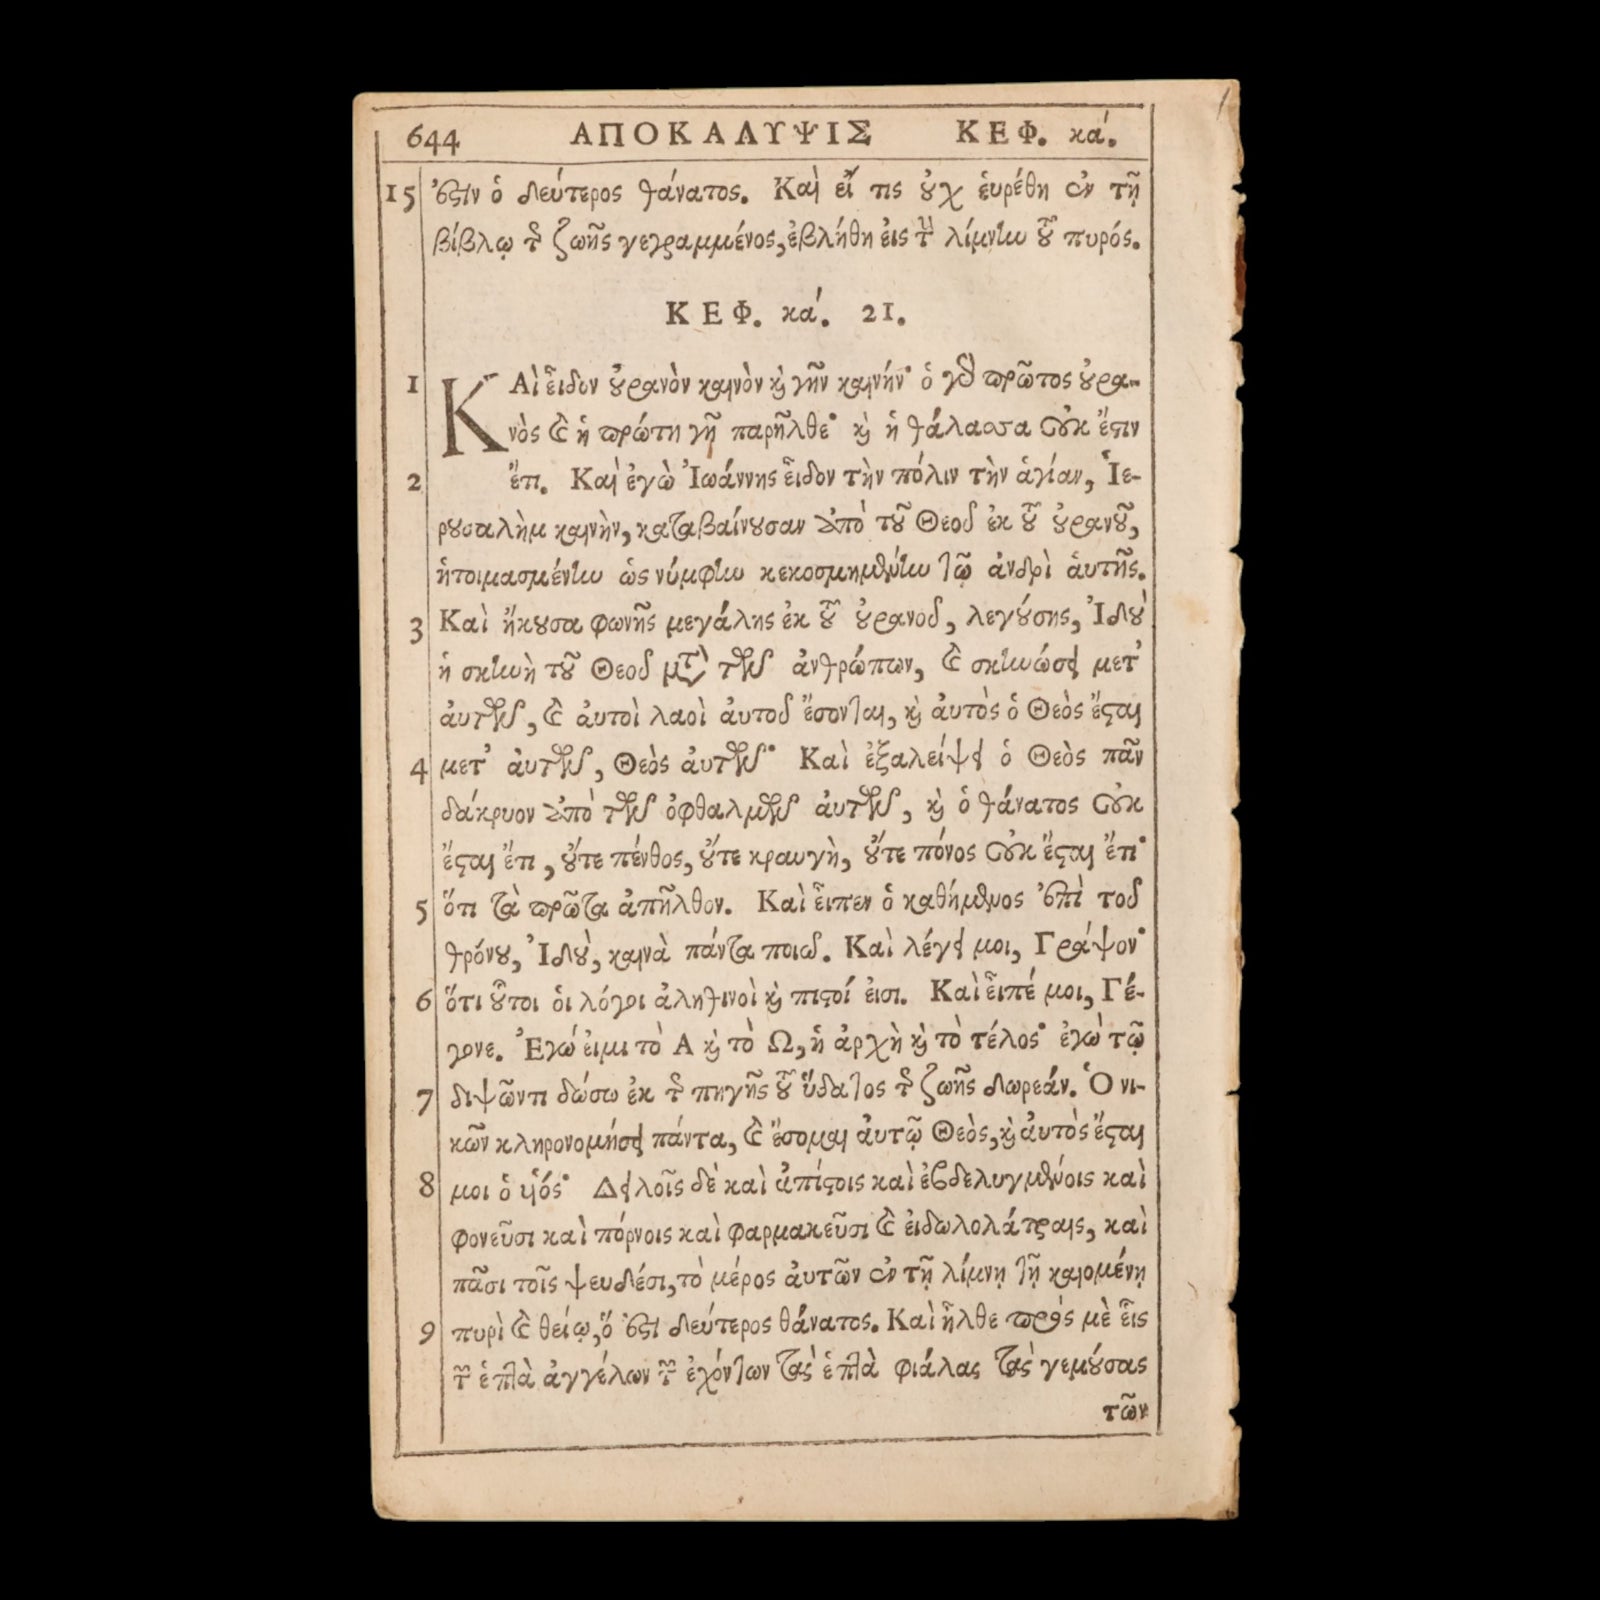 644 ΑΠΟΚΑΛΥΨΙΣ ΚΕΦ. κά.
15 ἐστὶν ὁ δεύτερος θάνατος. Καὶ εἴ τις οὐχ ἑυρέθη ἐν τῇ
βίβλῳ τῆς ζωῆς γεγραμμένος, ἐβλήθη ἐις τὴν λίμνην τοῦ πυρός.
ΚΕΦ. κά. 21.
1 ΚΑὶ εἶδον οὐρανὸν καινὸν καὶ γῆν καινήν· ὁ γὰρ πρῶτος οὐρα-
νὸς καὶ ἡ πρώτη γῆ παρῆλθε· καὶ ἡ θάλασσα οὐκ ἔστιν
2 ἔτι. Καὶ ἐγὼ Ἰωάννης εἶδον τὴν πόλιν τὴν ἁγίαν, Ἱε-
ρουσαλὴμ καινὴν, καταβαίνουσαν ἀπὸ τοῦ Θεοῦ ἐκ τοῦ οὐρανοῦ,
ἡτοιμασμένην ὡς νύμφην κεκοσμημένην τῷ ἀνδρὶ ἁυτῆς.
3 Καὶ ἤκουσα φωνῆς μεγάλης ἐκ τοῦ οὐρανοῦ, λεγούσης, Ἰδοὺ
ἡ σκηνὴ τοῦ Θεοῦ μετὰ τῶν ἀνθρώπων, καὶ σκηνώσει μετ᾽
ἀυτῶν, καὶ ἀυτοὶ λαοὶ ἀυτοῦ ἔσονται, καὶ ἀυτὸς ὁ Θεὸς ἔσται
4 μετ᾽ ἀυτῶν, Θεὸς ἀυτῶν· Καὶ ἐξαλείψει ὁ Θεὸς πᾶν
δάκρυον ἀπὸ τῶν ὀφθαλμῶν ἀυτῶν, καὶ ὁ θάνατος οὐκ
ἔσται ἔτι, οὔτε πένθος, οὔτε κραυγὴ, οὔτε πόνος οὐκ ἔσται ἔτι·
5 ὅτι τὰ πρῶτα ἀπῆλθον. Καὶ εἶπεν ὁ καθήμενος ἐπὶ τοῦ
θρόνου, Ἰδοὺ, καινὰ πάντα ποιῶ. Καὶ λέγει μοι, Γράψον·
6 ὅτι οὗτοι ὁι λόγοι ἀληθινοὶ καὶ πιστοί ἐισι. Καὶ εἶπέ μοι, Γέ-
γονε. Ἐγώ ἐιμι τὸ Α καὶ τὸ Ω, ἡ ἀρχὴ καὶ τὸ τέλος· ἐγὼ τῷ
7 διψῶντι δώσω ἐκ τῆς πηγῆς τοῦ ὕδατος τῆς ζωῆς δωρεάν. Ὁ νι-
κῶν κληρονομήσει πάντα, καὶ ἔσομαι ἀυτῷ Θεὸς, καὶ ἀυτὸς ἔσται
8 μοι ὁ υἱός· Δειλοῖς δὲ καὶ ἀπίστοις καὶ ἐβδελυγμένοις καὶ
φονεῦσι καὶ πόρνοις καὶ φαρμακεῦσι καὶ ἐιδωλολάτραις, καὶ
πᾶσι τοῖς ψευδέσι, τὸ μέρος ἀυτῶν ἐν τῇ λίμνῃ τῇ καιομένῃ
9 πυρὶ καὶ θείῳ, ὅ ἐστι δεύτερος θάνατος. Καὶ ἦλθε πρὸς μὲ εἷς
τῶν ἑπτὰ ἀγγέλων τῶν ἐχόντων τὰς ἑπτὰ φιάλας τὰς γεμούσας
τῶν